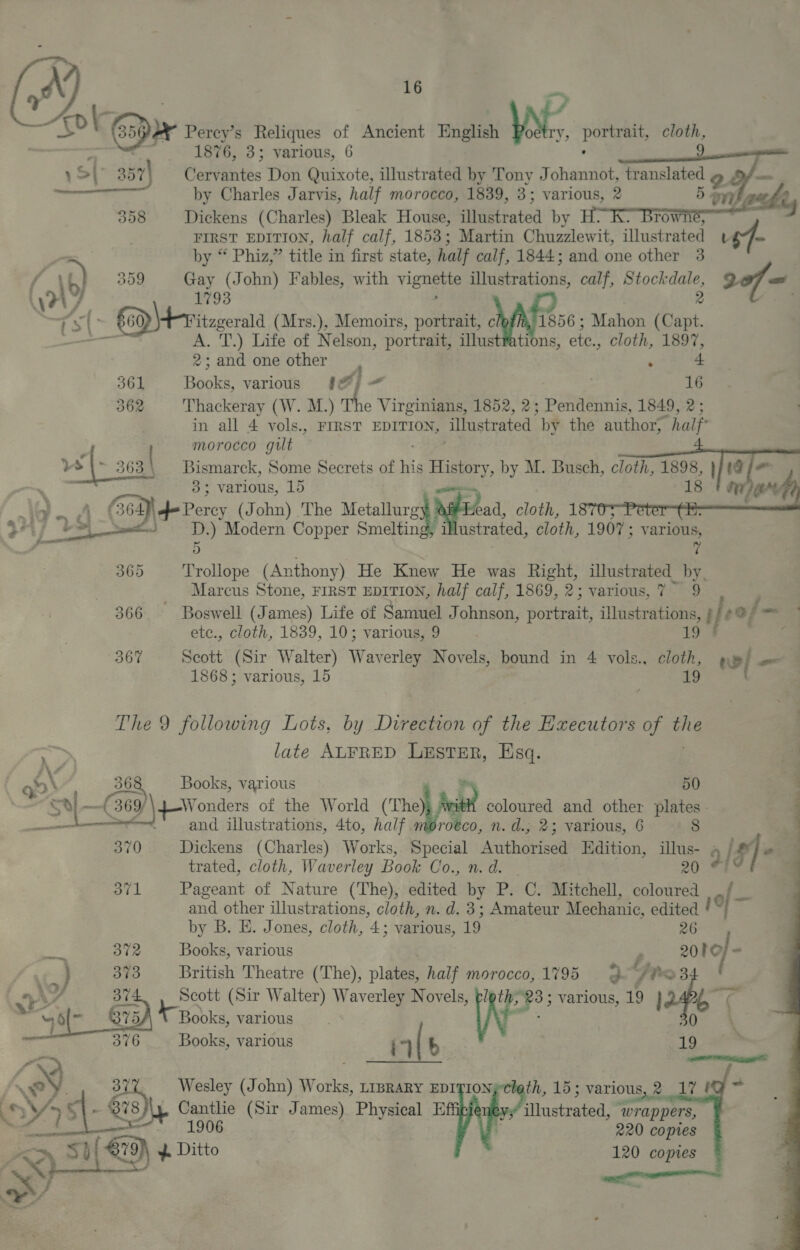 16
356 Percy's Reliques of Ancient English Poetry, portrait, cloth,
1876, 3; various, 6 9
357 Cervantes Don Quixote, illustrated by Tony Johannot, translated
by Charles Jarvis, half morocco, 1839, 3; various, 2 5
358 Dickens (Charles) Bleak House, illustrated by H. K. Browne,
FIRST EDITION, half calf, 1853; Martin Chuzzlewit, illustrated
by “ Phiz,” title in first state, half calf, 1844; and one other 3
359 Gay (John) Fables, with vignette illustrations, calf, Stockdale,
1793 2
360 Fitzgerald (Mrs.), Memoirs, portrait, cloth, 1856; Mahon (Capt.
A. T.) Life of Nelson, portrait, illustrations, etc., cloth, 1897,
2; and one other 4
361 Books, various 16
362 Thackeray (W. M.) The Virginians, 1852, 2; Pendennis, 1849, 2;
in all 4 vols., FIRST EDITION, illustrated by the author, half
morocco gilt 4
363 Bismarck, Some Secrets of his History, by M. Busch, cloth, 1898,
3; various, 15 18
364 Percy (John) The Metallurgy of Lead, cloth, 1870; Peter (E.
D.) Modern Copper Smelting, illustrated, cloth, 1907; various,
5 7
365 Trollope (Anthony) He Knew He was Right, illustrated by
Marcus Stone, FIRST EDITION, half calf, 1869, 2; various, 7 9
366 Boswell (James) Life of Samuel Johnson, portrait, illustrations,
etc., cloth, 1839, 10; various, 9 19
367 Scott (Sir Walter) Waverley Novels, bound in 4 vols., cloth,
1868; various, 15 19
The 9 following Lots, by Direction of the Executors of the
late ALFRED LESTER, Esq.
368 Books, various 50
369 Wonders of the World (The), with coloured and other plates
and illustrations, 4to, half morocco, n. d., 2; various, 6 8
370 Dickens (Charles) Works, Special Authorised Edition, illus-
trated, cloth, Waverley Book Co., n. d. 20
371 Pageant of Nature (The), edited by P. C. Mitchell, coloured
and other illustrations, cloth, n. d. 3; Amateur Mechanic, edited
by B. E. Jones, cloth, 4; various, 19 26
372 Books, various 20
373 British Theatre (The), plates, half morocco, 1795 34
374 Scott (Sir Walter) Waverley Novels, cloth, 23; various, 19 42
375 Books, various 30
376 Books, various 19
377 Wesley (John) Works, LIBRARY EDITION, cloth, 15; various, 2 17
378 Cantlie (Sir James) Physical Efficiency, illustrated, wrappers,
1906 220 copies
379 Ditto 120 copies